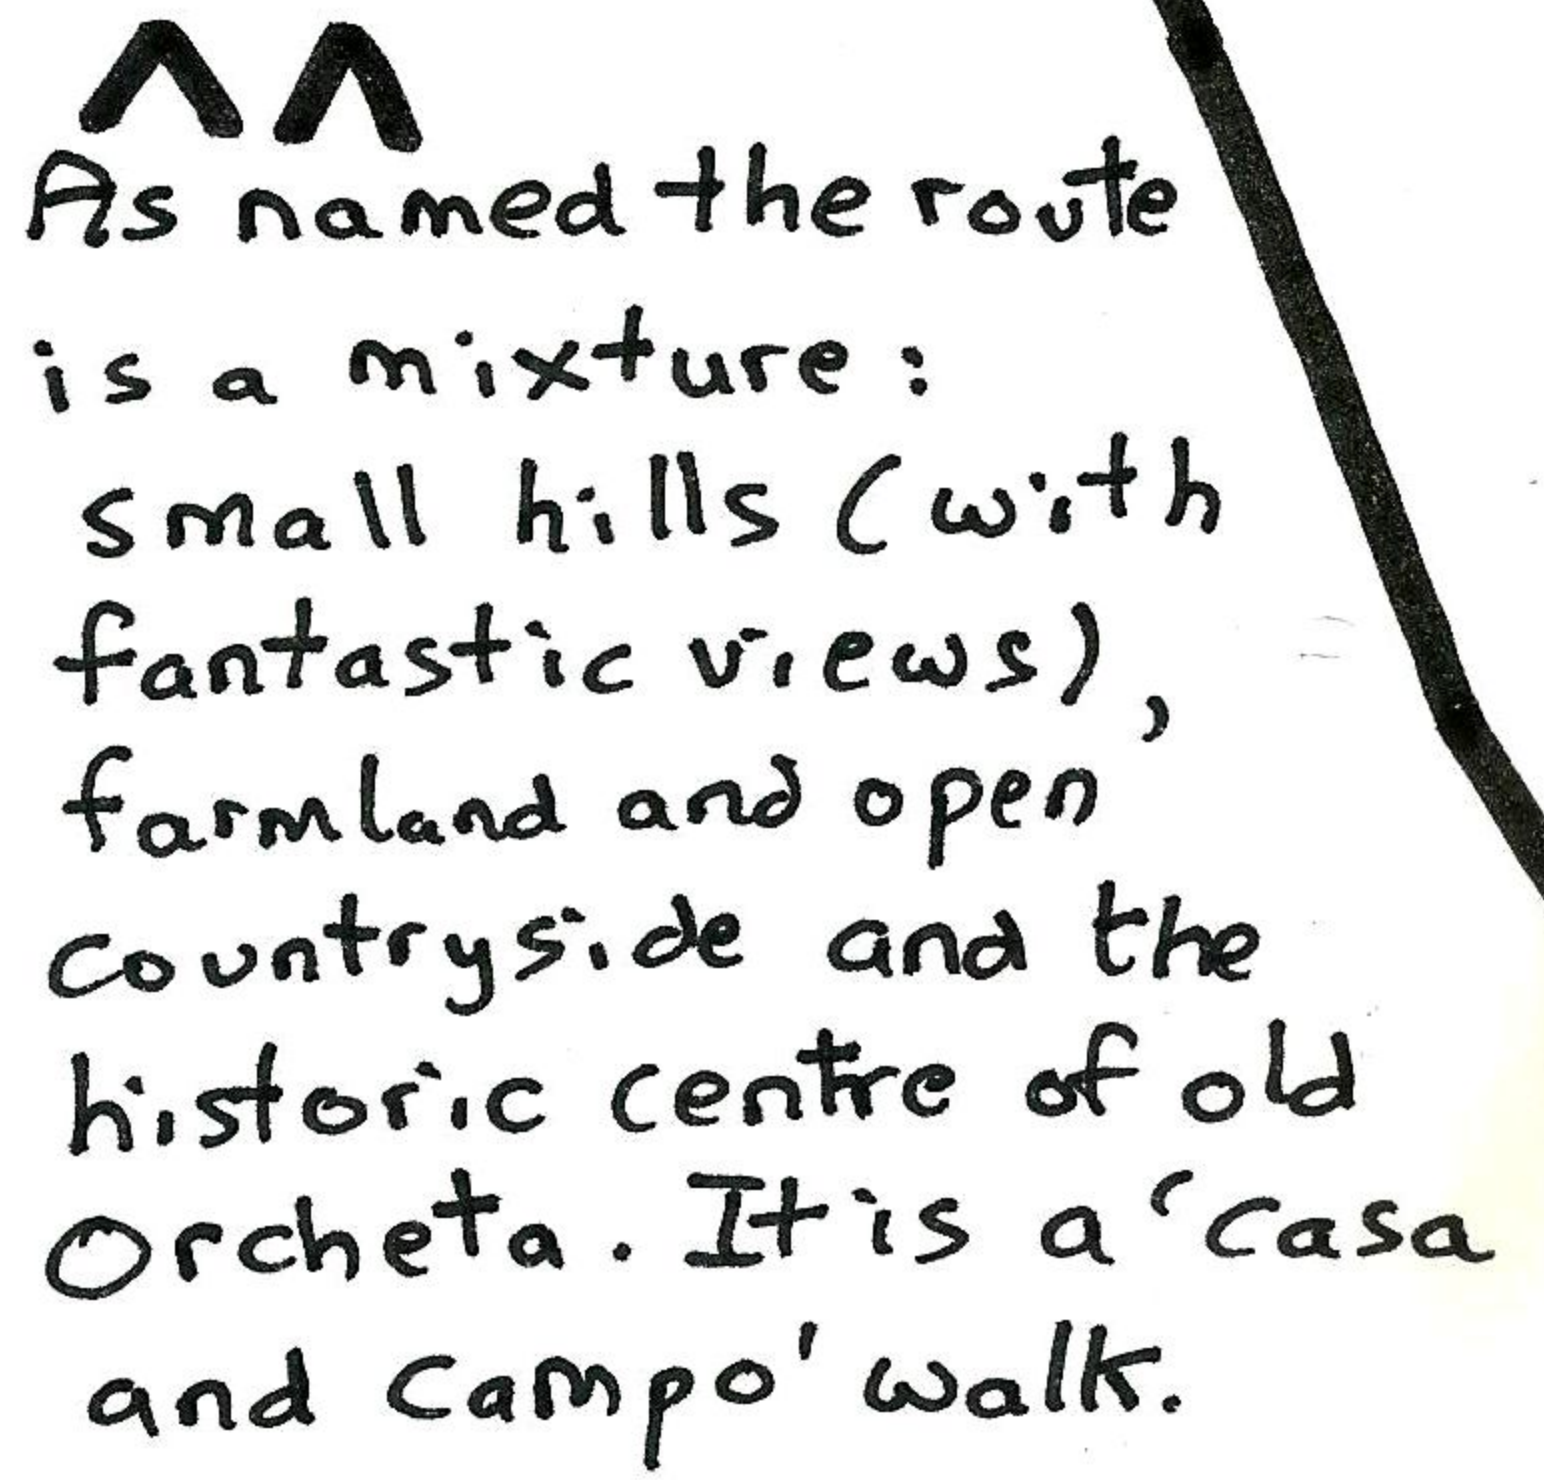 As named the route
is a mixture:
small hills (with
fantastic views),
farmland and open
countryside and the
historic centre of old
Orcheta. It is a 'casa
and campo' walk.